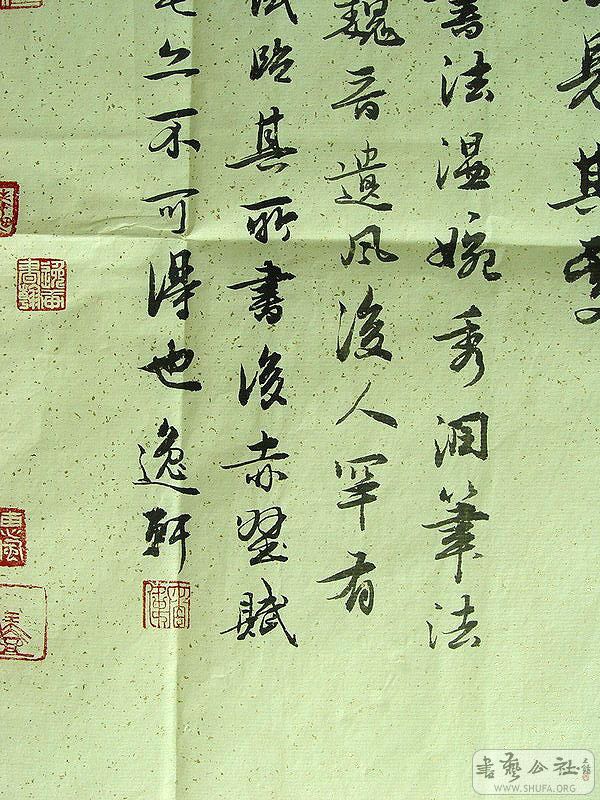 見其
書法温婉秀潤筆法
魏晋遺風後人罕有
試臨其所書後赤壁賦
亦不可得也逸軒
書藝公社
WWW.SHUFA.ORG